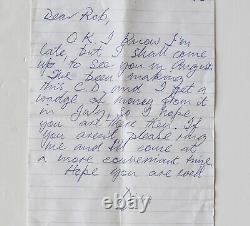 Dear Rob,
O.K. I know I'm
late, but I shall come
up to see you in August.
I've been making
this C.D. and I get a
wadge of money from it
in July, so I hope
you are here then. If
you arent please ring
me and I'll come at
a more convenient time.
Hope you are well